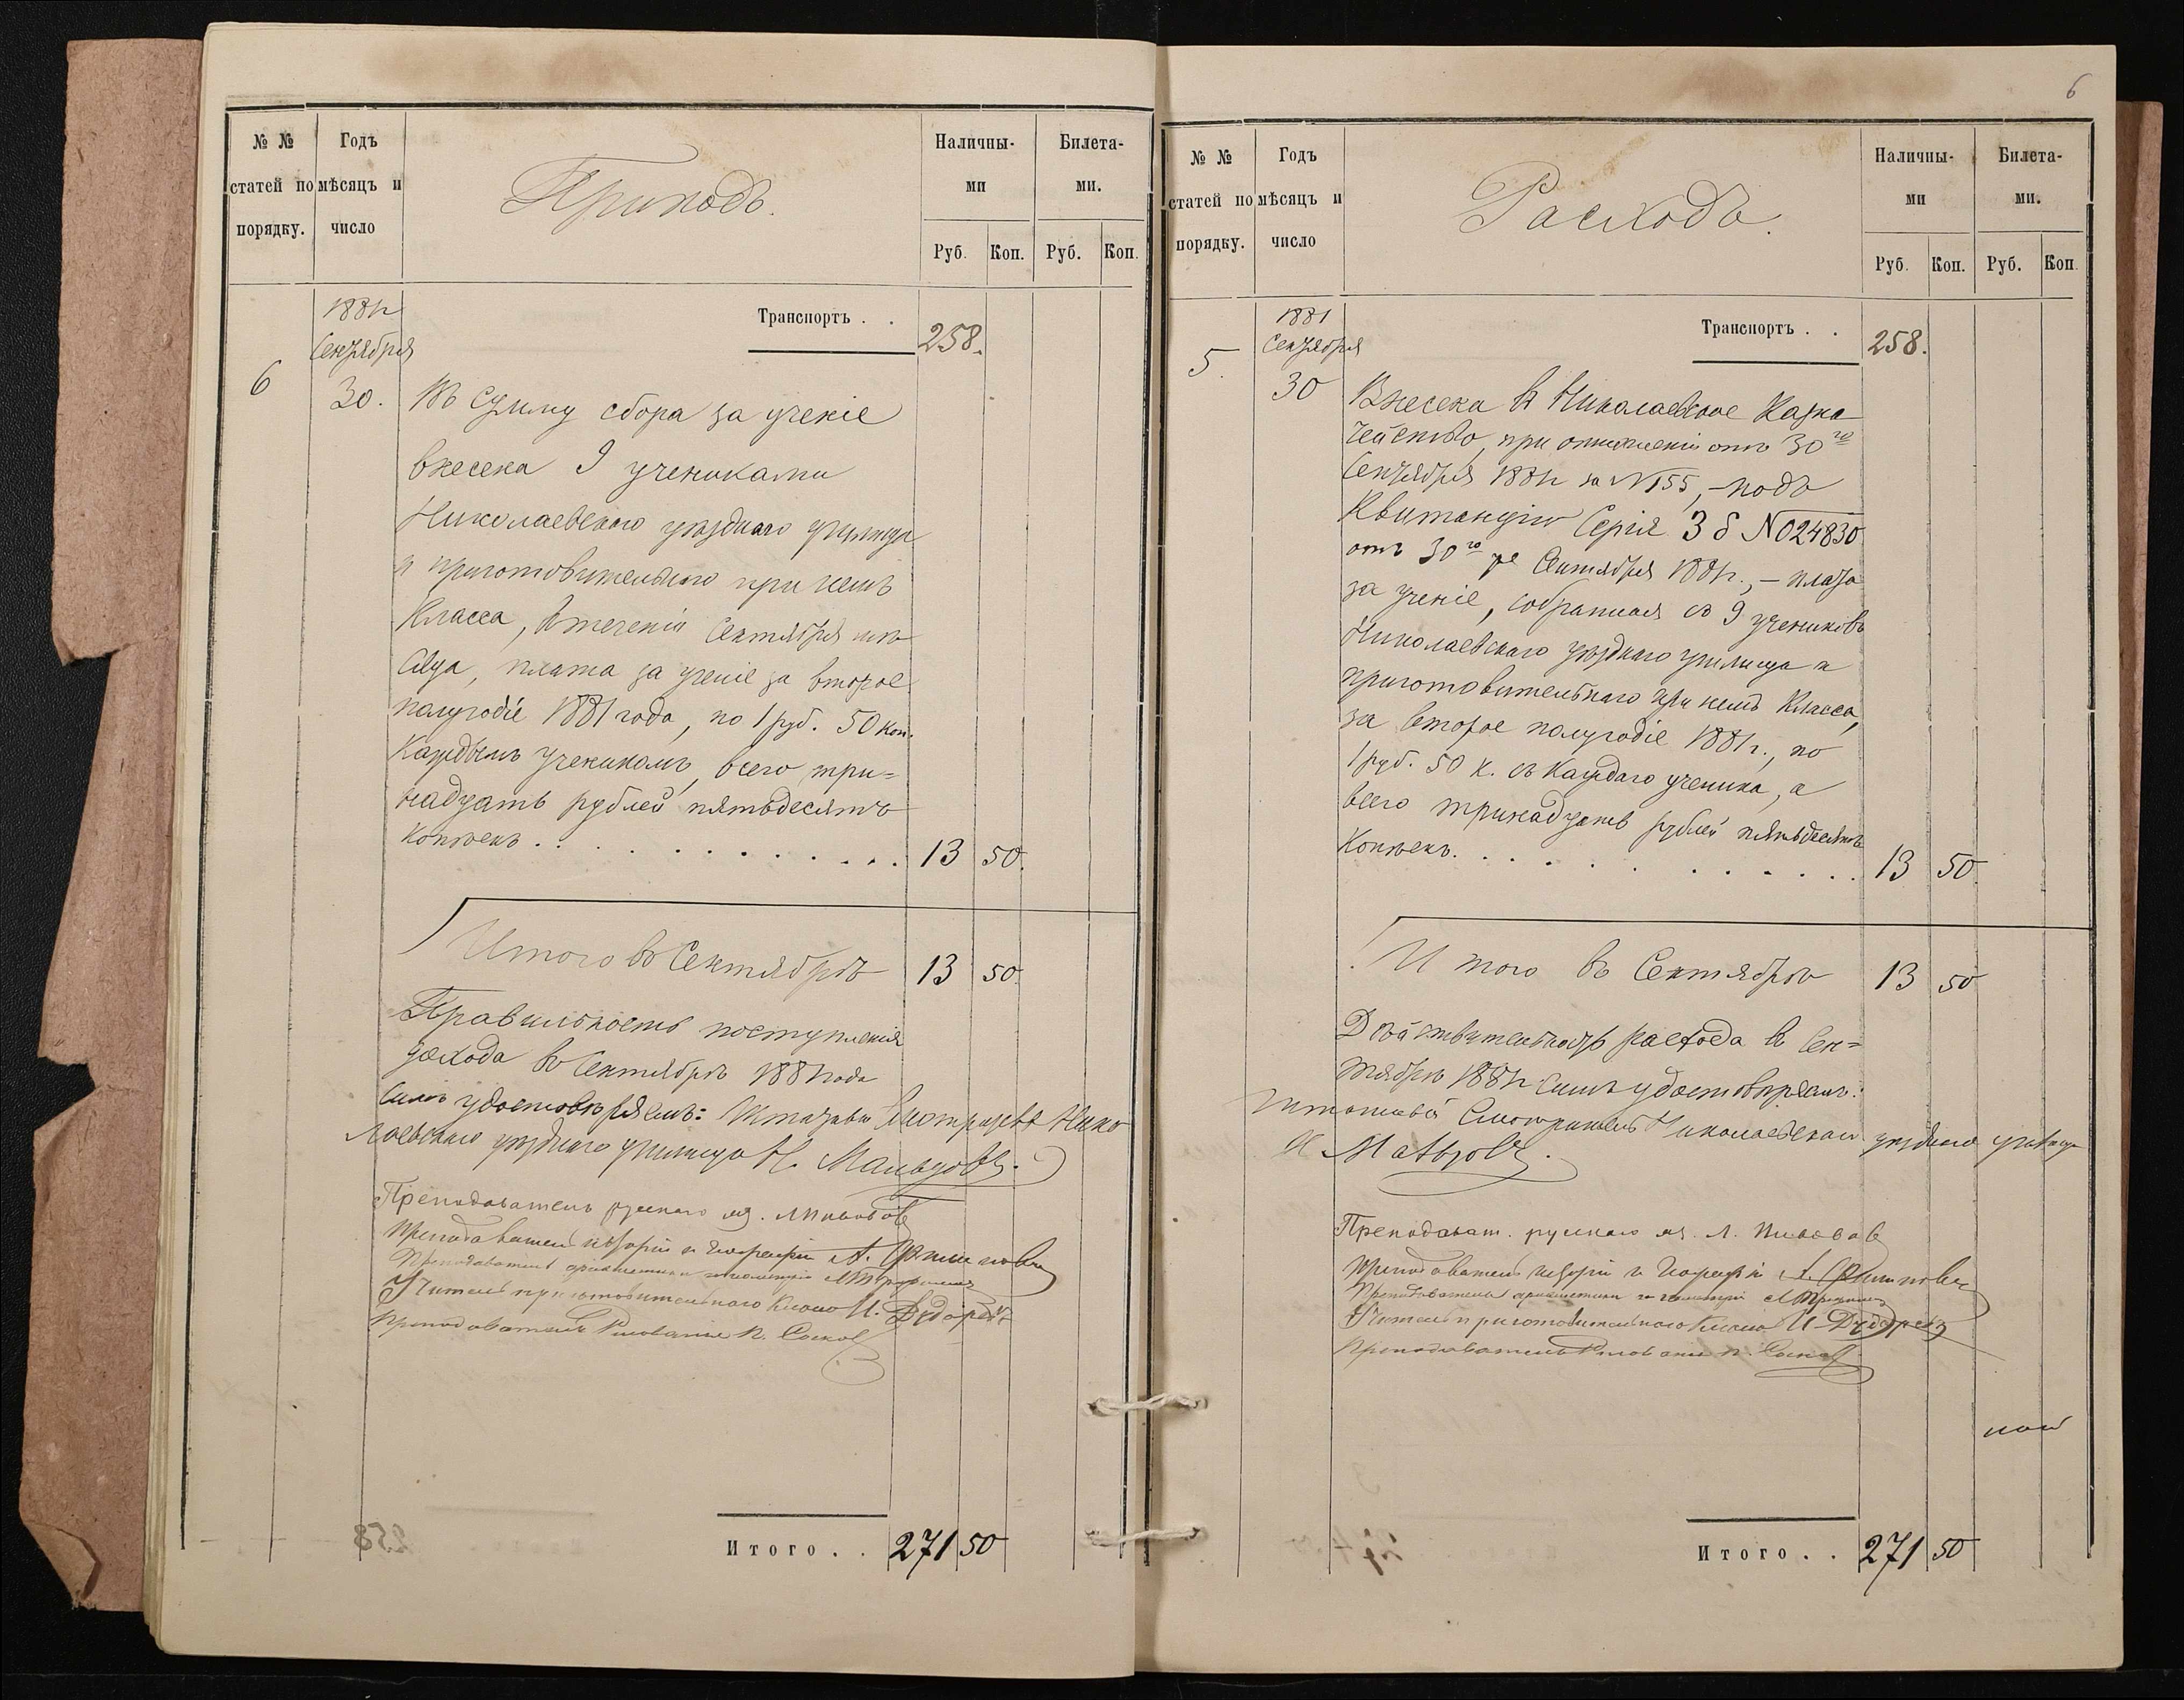 № № статей по порядку.
Годъ мѣсяцъ и число
Приходъ.
Наличны-
ми
Билета-
ми.
Руб. Коп. Руб. Коп.
1881 г.
Сентября
Транспортъ . . 258.
6 30. Въ сумму сбора за ученіе
внесена 9 учениками
Николаевскаго уѣзднаго училища
и приготовительнаго при немъ
класса, втеченіи Сентября мѣ-
сяца, плата за ученіе за второе
полугодіе 1881 года, по 1 руб. 50 коп.
каждымъ ученикомъ, всего три=
надцать рублей пятьдесятъ
копѣекъ . . . . . . . . . . . 13 50.
Итого въ Сентябрѣ 13 50.
Правильность поступленія
дохода въ Сентябрѣ 1881 года
симъ удостовѣряемъ: Штатный Смотритель Нико
лаевскаго уѣзднаго училища
Преподаватель русскаго яз.
Преподаватель исторіи и географіи А.
Преподаватель ариѳметики и геометріи
Учитель приготовительнаго класса И.
Преподаватель Рисованія П.
Итого . . 271 50
6
№ № статей по порядку.
Годъ мѣсяцъ и число
Расходъ.
Наличны-
ми
Билета-
ми.
Руб. Коп. Руб. Коп.
1881
Сентября
Транспортъ . . 258.
5. 30 Внесена въ Николаевское Казна
чейство, при отношеніи отъ 30го
Сентября 1881 г. за № 155, – подъ
квитанцію Серія З б № 024830
отъ 30го Сентября 1881 г., – плата
за ученіе, собранная съ 9 учениковъ
Николаевскаго уѣзднаго училища и
приготовительнаго при немъ класса,
за второе полугодіе 1881 г., по
1 руб. 50 к. съ каждаго ученика, а
всего тринадцать рублей пятьдесятъ
копѣекъ. . . . . . . . . . . 13 50.
Итого въ Сентябрѣ 13 50
Дѣйствительность расхода въ Сен=
тябрѣ 1881 г. симъ удостовѣряемъ:
Штатный Смотритель Николаевскаго уѣзднаго училища
Преподават. русскаго яз. Л.
Преподаватель исторіи и географіи А.
Преподаватель ариѳметики и геометріи
Учитель приготовительнаго класса И.
Преподаватель Рисованія П.
Итого . . 271 50